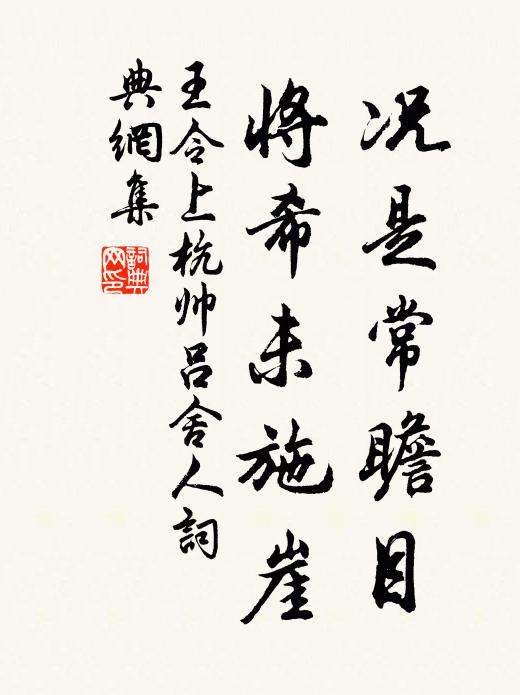 况是常瞻目
將希未施崖
王令上杭帅吕舍人詞
典網集
詞典网印